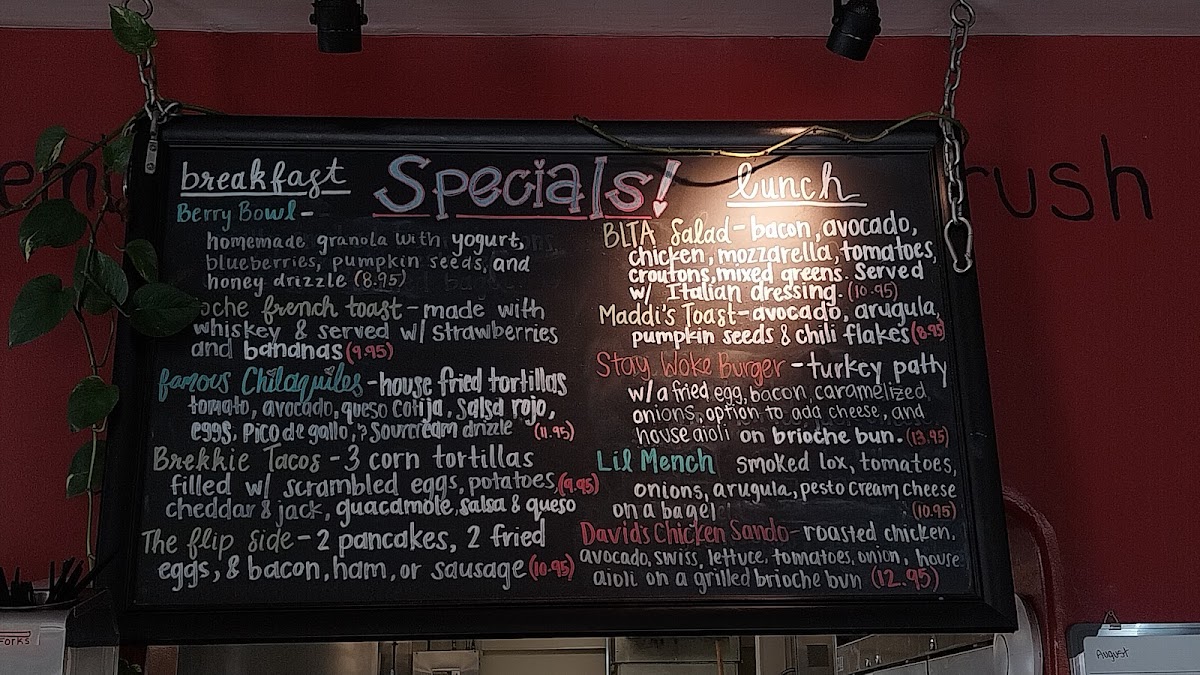 Specials!
breakfast
Berry Bowl -
homemade granola with yogurt,
blueberries, pumpkin seeds, and
honey drizzle (8.95)
oche french toast - made with
whiskey & served w/ strawberries
and bananas (9.95)
famous Chilaquiles - house fried tortillas
tomato, avocado, queso cotija, salsa rojo,
eggs, pico de gallo, & sourcream drizzle (11.95)
Brekkie Tacos - 3 corn tortillas
filled w/ scrambled eggs, potatoes, (9.95)
cheddar & jack, guacamole, salsa & queso
The flip side - 2 pancakes, 2 fried
eggs, & bacon, ham, or sausage (10.95)
lunch
BLTA Salad - bacon, avocado,
chicken, mozzarella, tomatoes,
croutons, mixed greens. Served
w/ Italian dressing. (10.95)
Maddi's Toast - avocado, arugula,
pumpkin seeds & chili flakes (8.95)
Stay Woke Burger - turkey patty
w/ a fried egg, bacon, caramelized
onions, option to add cheese, and
house aioli on brioche bun. (13.95)
Lil Mench smoked lox, tomatoes,
onions, arugula, pesto cream cheese
on a bagel (10.95)
David's Chicken Sando - roasted chicken,
avocado, swiss, lettuce, tomatoes, onion, house
aioli on a grilled brioche bun (12.95)
rush
Forks
August